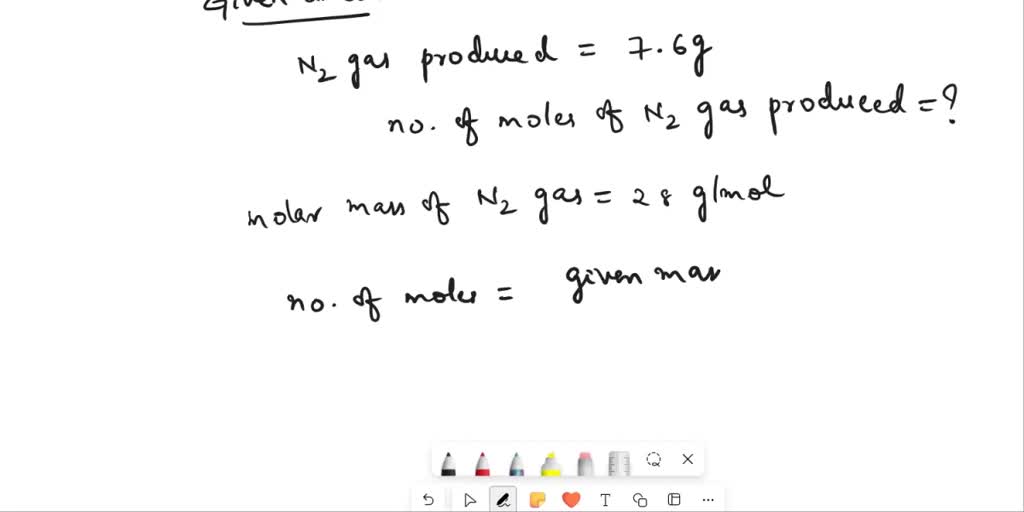 Given
N2 gas produced = 7.6g
no. of moles of N2 gas produced = ?
molar mass of N2 gas = 28 g/mol
no. of moles = given mas
T